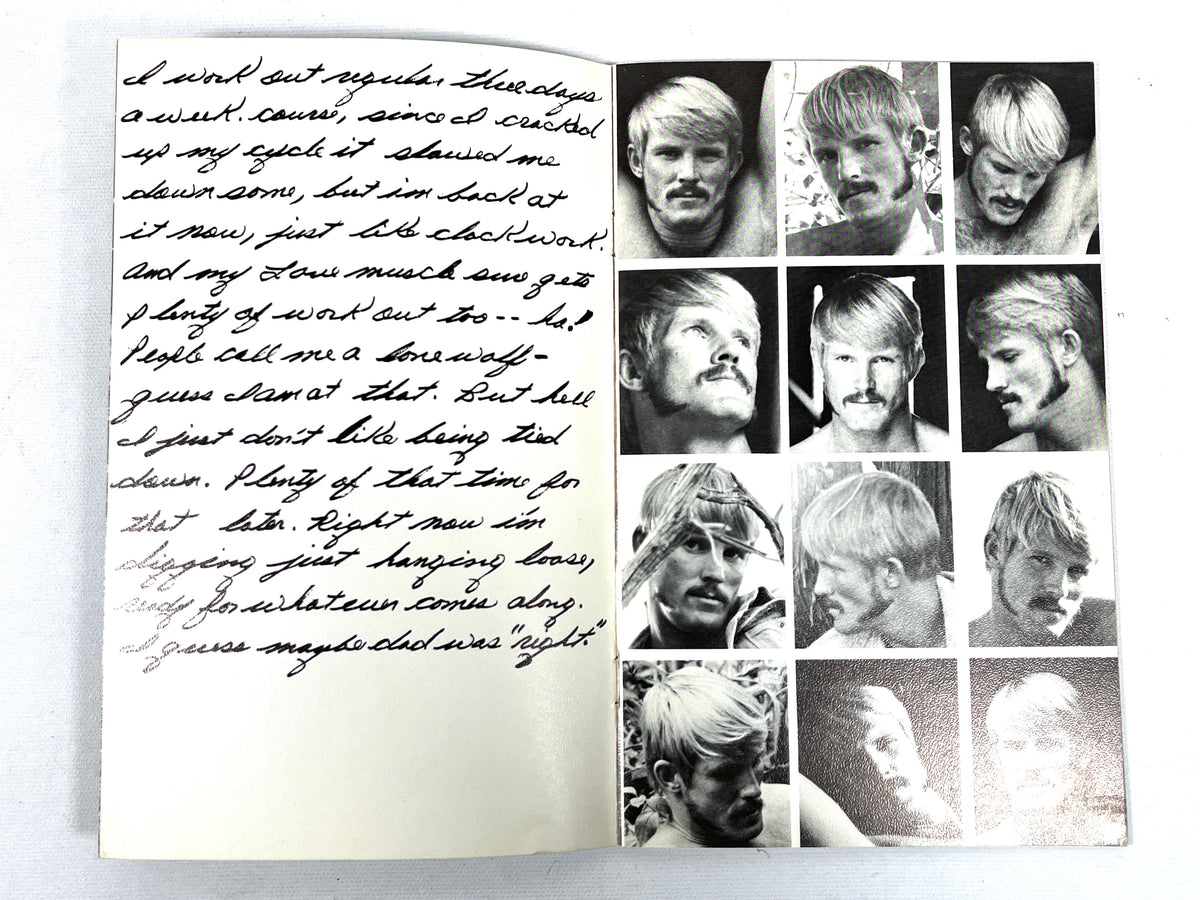 I work out regular three days
a week. course, since I cracked
up my cycle it slowed me
down some, but im back at
it now, just like clockwork.
And my Love muscle sure gets
plenty of work out too -- ha!
People call me a lone wolf-
guess I am at that. But hell
I just don't like being tied
down. Plenty of that time for
that later. Right now i'm
digging just hanging loose,
redy for whatever comes along.
I guess maybe dad was "right."